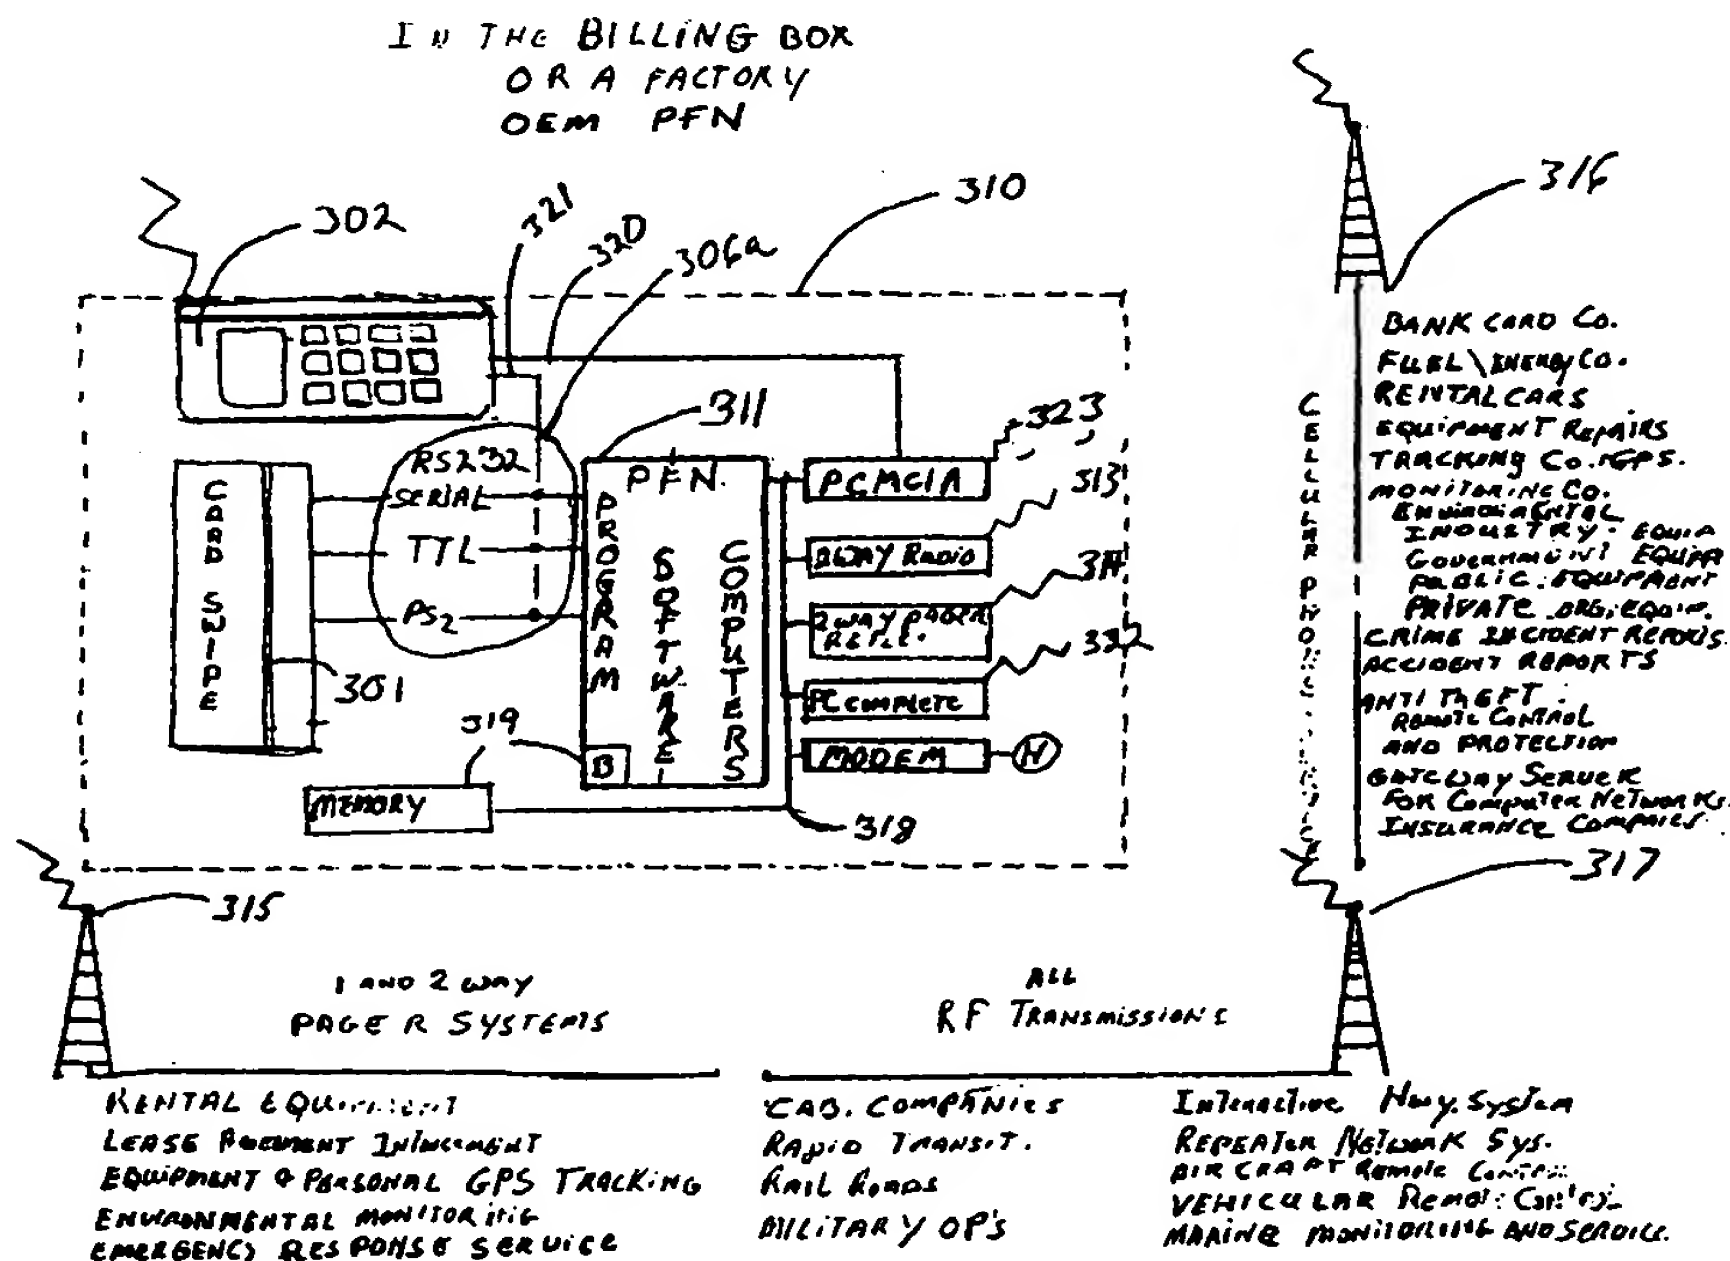 IN THE BILLING BOX
OR A FACTORY
OEM PFN
302
321
320
306a
310
316
311
323
RS232
SERIAL
TTL
PS2
CARD SWIPE
301
PFN
PROGRAM
SOFTWARE
COMPUTERS
B
PCMCIA
2WAY RADIO
313
2 WAY PAGER
314
PC COMPLETE
332
MODEM
H
319
MEMORY
318
CELLULAR PHONE
BANK CARD Co.
FUEL\ENERGY CO.
RENTAL CARS
EQUIPMENT REPAIRS
TRACKING Co. GPS.
MONITORING CO.
ENVIRONMENTAL
INDUSTRY. EQUIP
GOVERNMENT EQUIP
PUBLIC. EQUIPMENT
PRIVATE ORG. EQUIP.
CRIME INCIDENT REPORTS.
ACCIDENT REPORTS
ANTI THEFT.
REMOTE CONTROL
AND PROTECTION
GATEWAY SERVER
FOR COMPUTER NETWORKS.
INSURANCE COMPANIES.
317
315
1 AND 2 WAY
PAGER SYSTEMS
ALL
RF TRANSMISSIONS
RENTAL EQUIPMENT
LEASE
EQUIPMENT & PERSONAL GPS TRACKING
ENVIRONMENTAL MONITORING
EMERGENCY RESPONSE SERVICE
CAB. COMPANIES
RAPID TRANSIT.
RAIL ROADS
MILITARY OP'S
Interactive Hwy. System
REPEATER NETWORK SYS.
AIR CRAFT Remote Control
VEHICULAR Remote Control
MARINE MONITORING AND SERVICE.